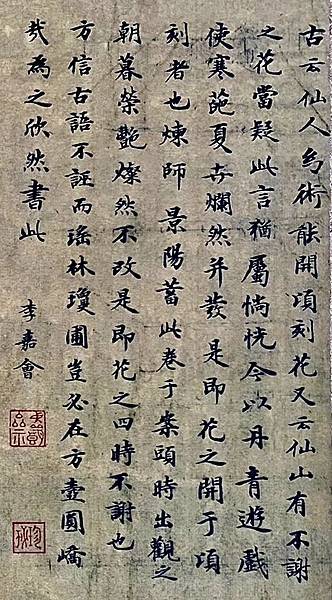 古云仙人有術能開頃刻花又云仙山有不謝
之花嘗疑此言猶屬惝恍今以丹青遊戲
使寒葩夏卉爛然并發是即花之開于頃
刻者也煉師景陽蓄此卷于案頭時出觀之
朝暮榮艷燦然不改是即花之四時不謝也
方信古語不誣而瑤林瓊圃豈必在方壺圓嶠
哉為之欣然書此
李嘉會